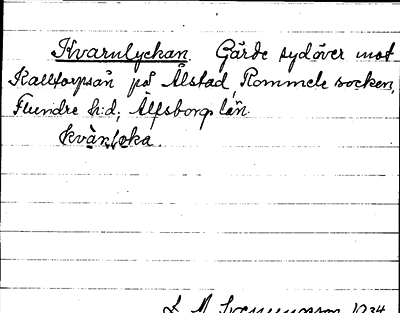 Kvarnlyckan. Gärde sydöver mot
Kalltorpsån på Ålstad, Rommele socken,
Flundre h:d, Älfsborgs län.
L. M. Svenungsson 1934